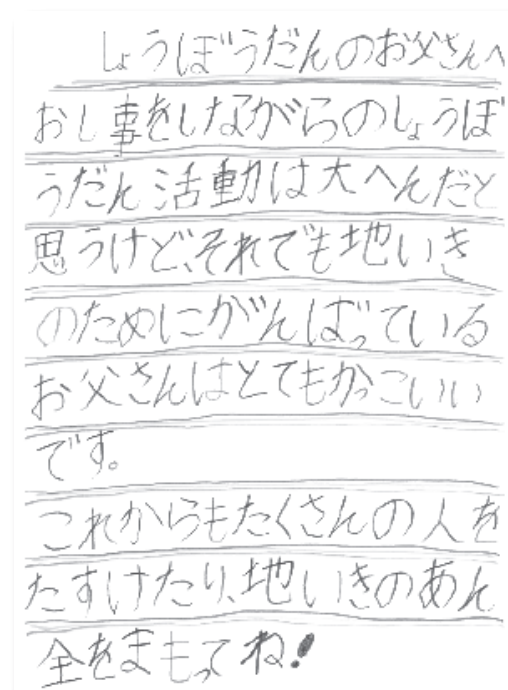 しょうぼうだんのお父さんへ
お し事をしながらのしょうぼ
うだん活動は大へんだと
思うけど、それでも地いき
のためにがんばっている
お父さんはとてもかっこいい
です。
これからもたくさんの人を
たすけたり、地いきのあん
全をまもってね!